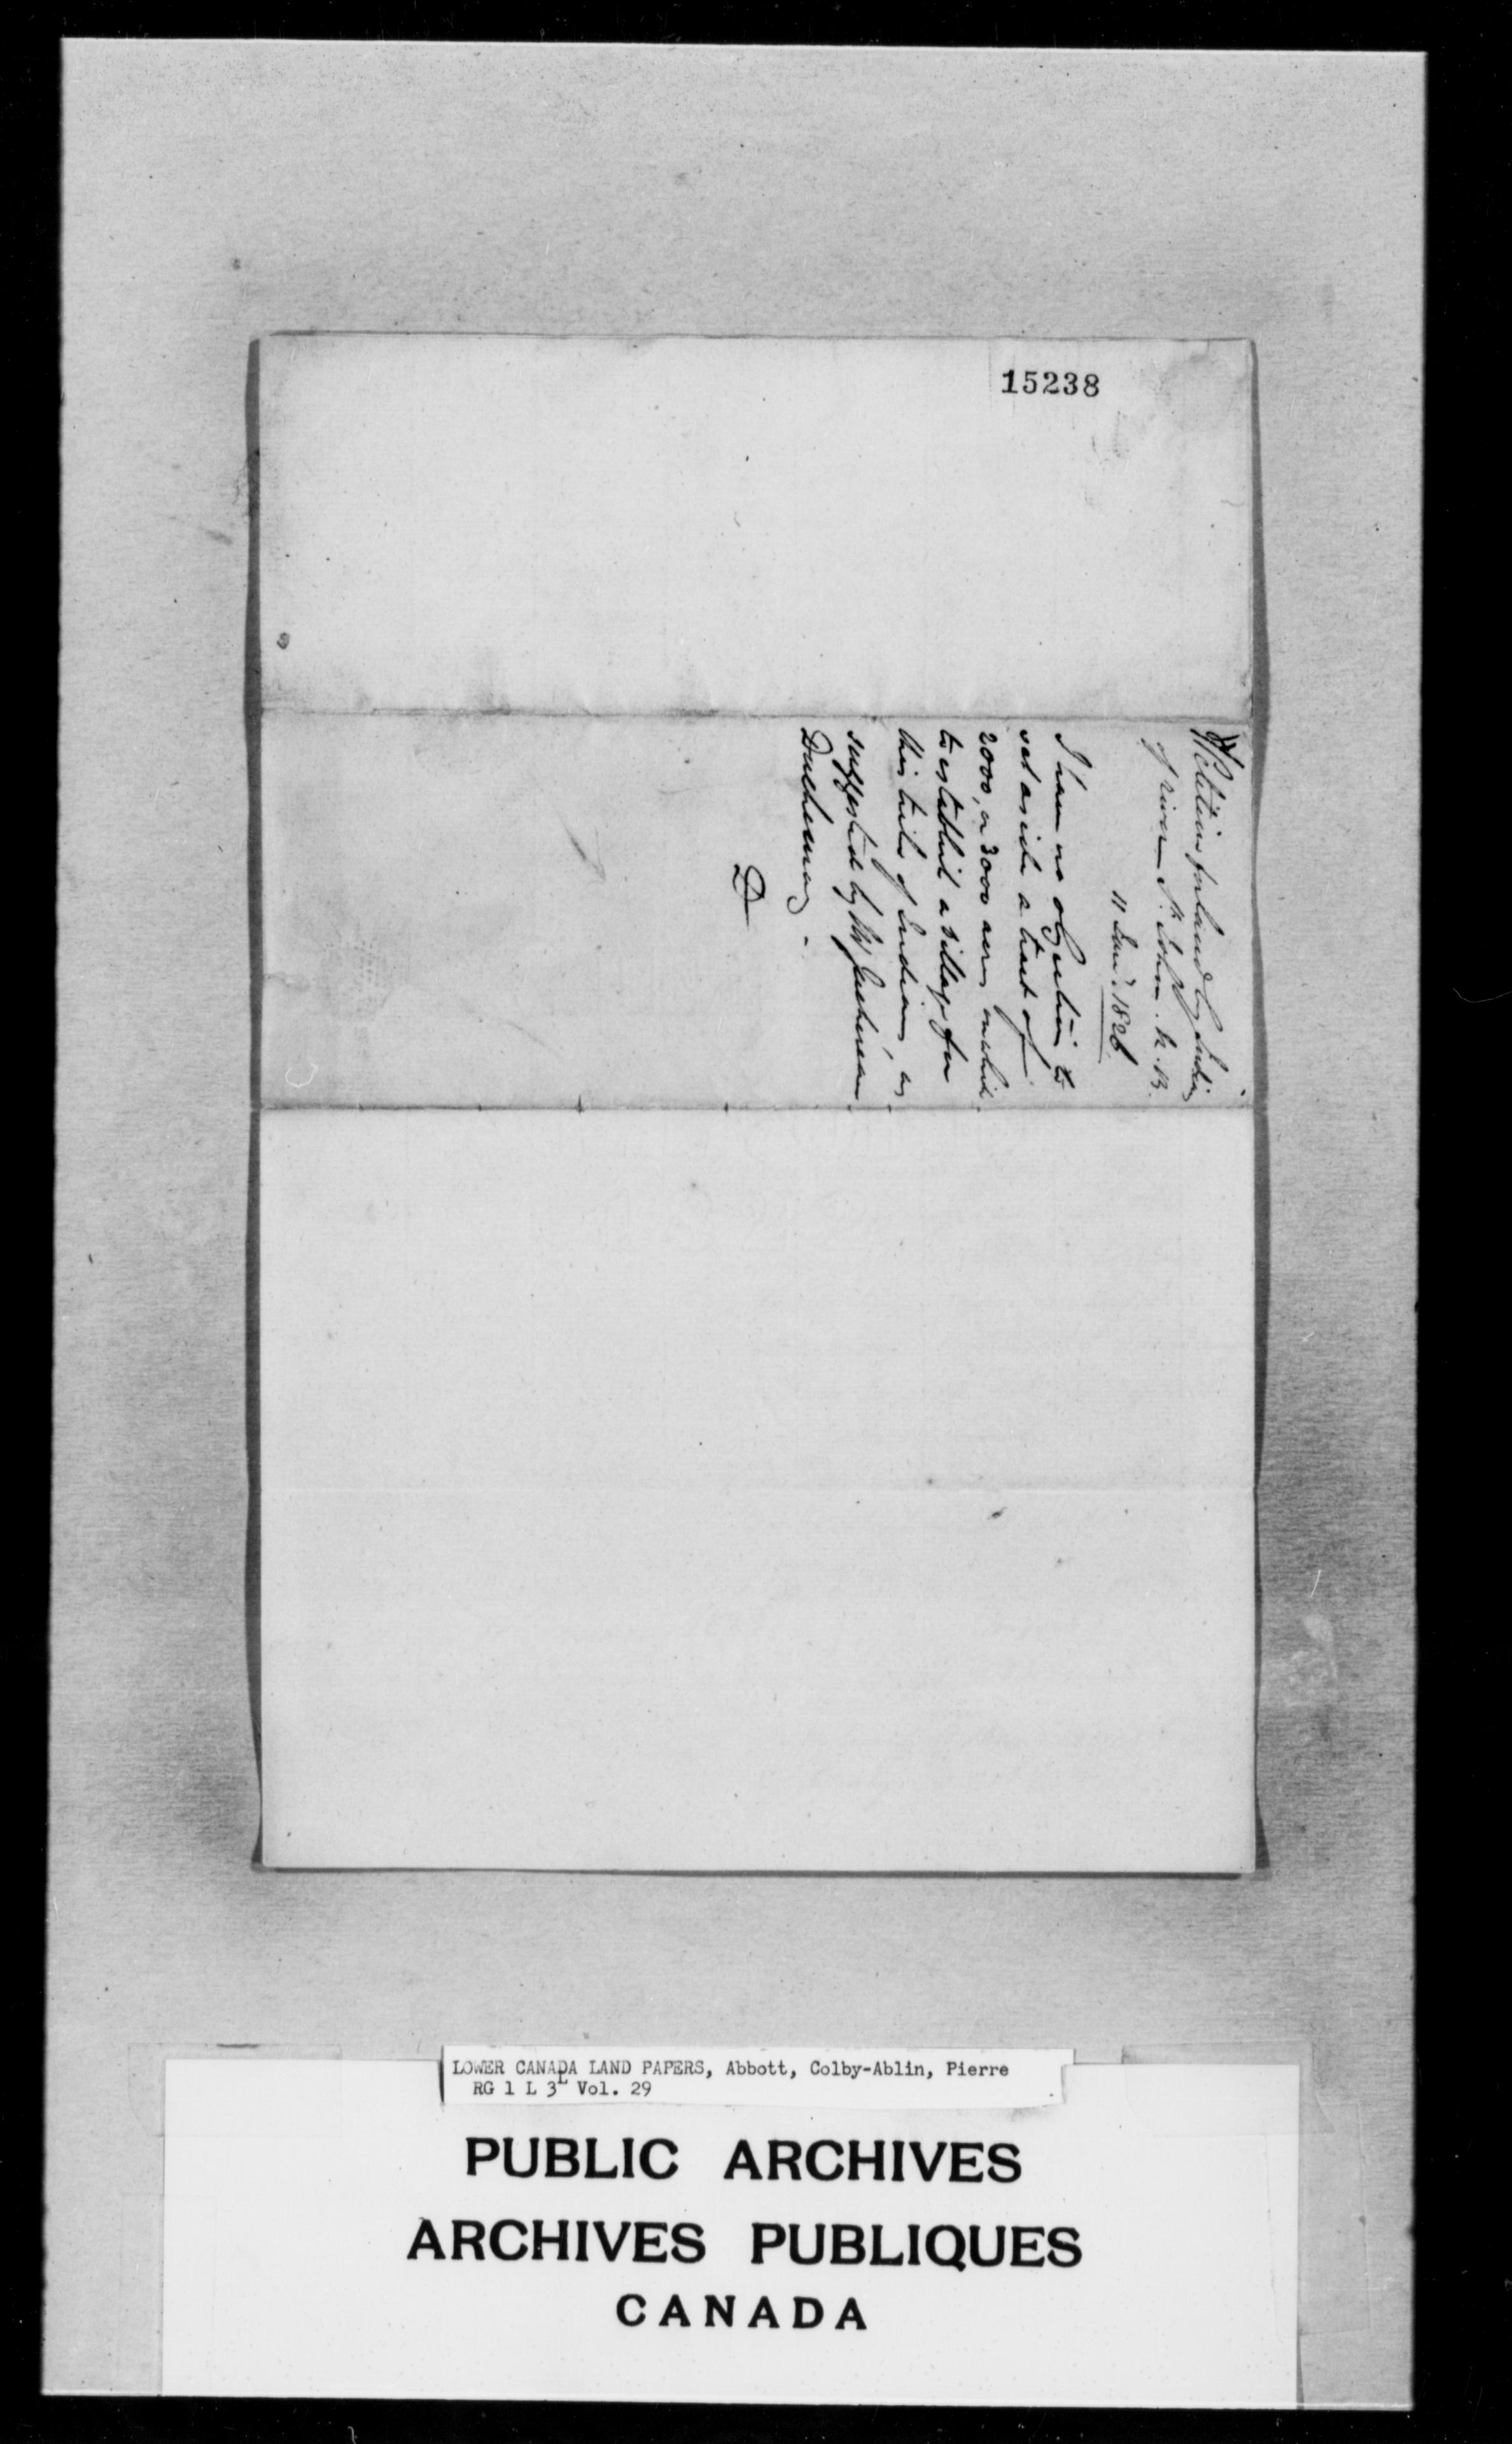 15238
Petition for land by Indians
of river St. John. N. B.
11 Jany. 1826
I have no objection to
set aside a tract of
2000, or 3000 acres on which
to establish a Village for
this tribe of Indians, as
suggested by Mr Juchereau
Duchesnay.
D
LOWER CANADA LAND PAPERS, Abbott, Colby-Ablin, Pierre
RG 1 L 3L Vol. 29
PUBLIC ARCHIVES
ARCHIVES PUBLIQUES
CANADA